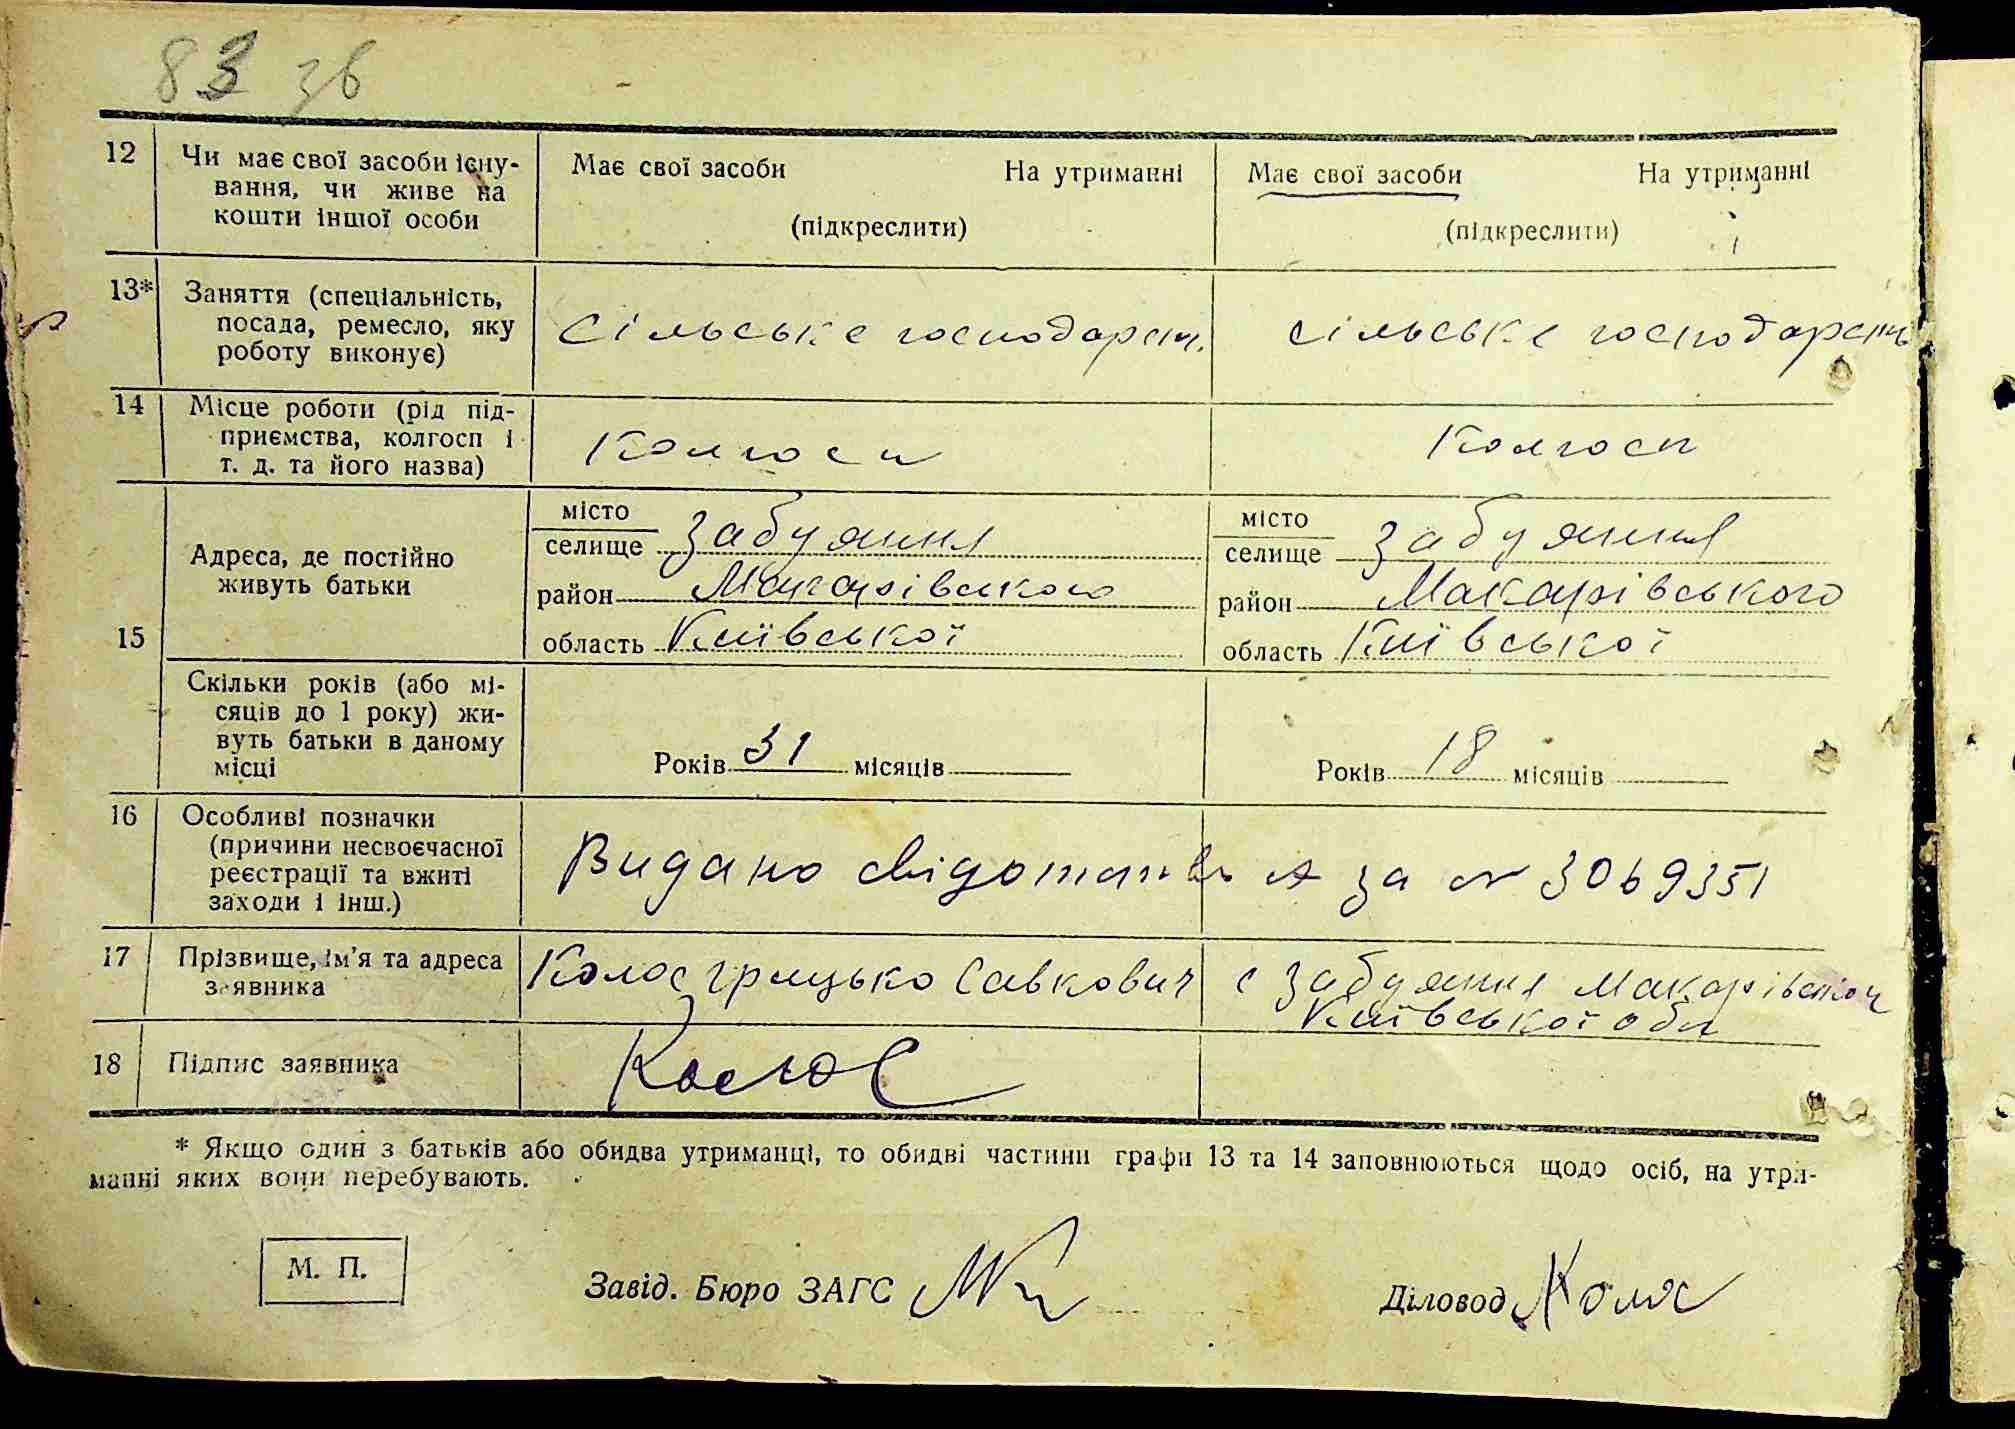 83 зв
12 Чи має свої засоби існу-
вання, чи живе на
кошти іншої особи
Має свої засоби На утриманні
(підкреслити)
Має свої засоби На утриманні
(підкреслити)
13* Заняття (спеціальність,
посада, ремесло, яку
роботу виконує)
Сільське господарст.
сільське господарств
14 Місце роботи (рід під-
приємства, колгосп і
т. д. та його назва)
Колгосп
Колгосп
15
Адреса, де постійно
живуть батьки
місто
селище Забуяння
район Макарівського
область Київської
місто
селище Забуяння
район Макарівського
область Київської
Скільки років (або мі-
сяців до 1 року) жи-
вуть батьки в даному
місці
Років 31 місяців
Років 18 місяців
16 Особливі позначки
(причини несвоєчасної
реєстрації та вжиті
заходи і інш.)
Видано свідотатв А за № 3069351
17 Прізвище, ім'я та адреса
заявника
Колос Грицько Савкович
с Забуяння Макарівськог
Київської обл
18 Підпис заявника
Колос
* Якщо один з батьків або обидва утриманці, то обидві частини графи 13 та 14 заповнюються щодо осіб, на утри-
манні яких вони перебувають.
М. П.
Завід. Бюро ЗАГС
Діловод